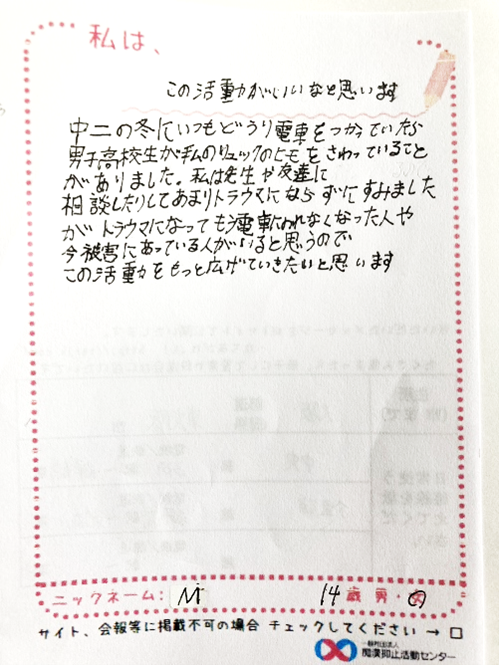 私は、
この活動がいいなと思います
中二の冬にいつもどうり電車をつかっていたら
男子高校生が私のリュックのヒモをさわっていること
がありました。私は先生や友達に
相談したりしてあまりトラウマにならずにすみました
がトラウマになってもう電車にのれなくなった人や
今被害にあっている人がいると思うので
この活動をもっと広げていきたいと思います
ニックネーム: M 14歳 男・女
サイト、会報等に掲載不可の場合 チェックしてください → □
一般社団法人
痴漢抑止活動センター